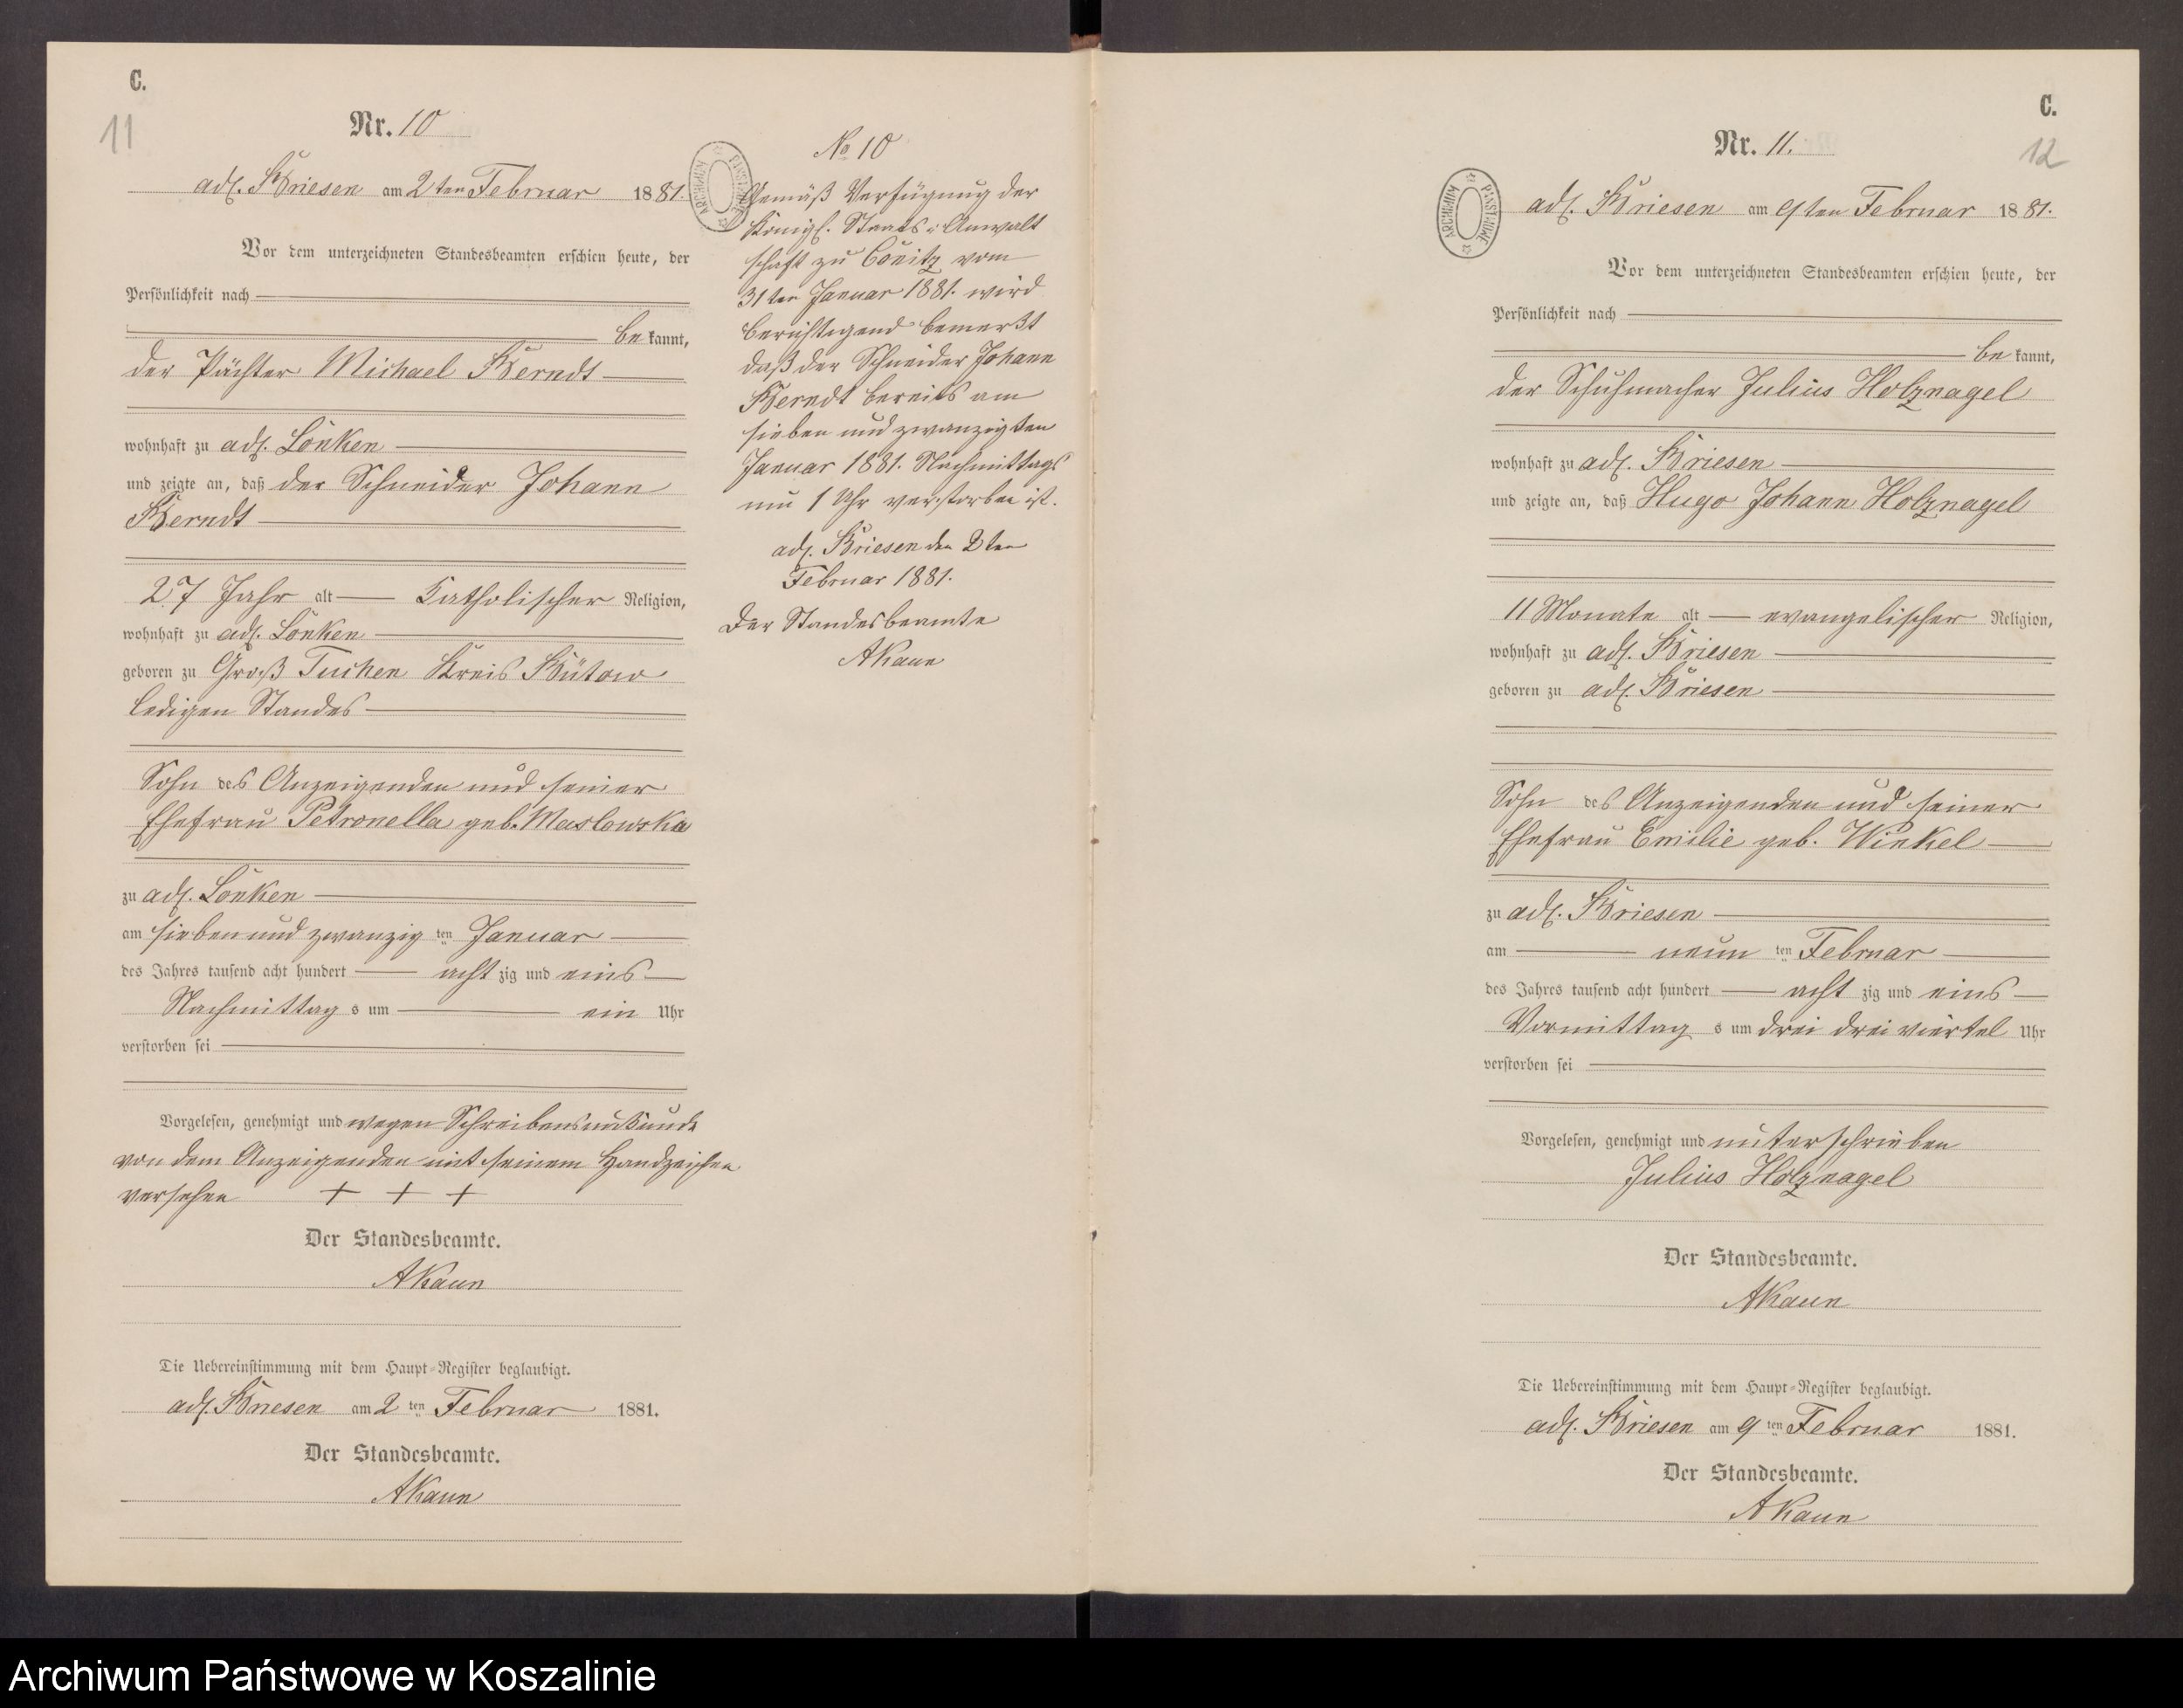 C.
11
Nr. 10
adl. Briesen am 2ten Februar 1881.
Vor dem unterzeichneten Standesbeamten erschien heute, der
Persönlichkeit nach
be kannt,
der Pächter Michael Berndt
wohnhaft zu adl. Lonken
und zeigte an, daß der Schneider Johann
Berndt
27 Jahr alt Katholischer Religion,
wohnhaft zu adl. Lonken
geboren zu Groß Tuchen Kreis Bütow
ledigen Standes
Sohn des Anzeigenden und seiner
Ehefrau Petronella geb. Maslowska
zu adl. Lonken
am sieben und zwanzig ten Januar
des Jahres tausend acht hundert acht zig und eins
Nachmittag s um ein Uhr
verstorben sei
Vorgelesen, genehmigt und wegen Schreibensunkunde
von dem Anzeigenden mit seinem Handzeichen
versehen + + +
Der Standesbeamte.
AKaun
Die Uebereinstimmung mit dem Haupt-Register beglaubigt.
adl. Briesen am 2 ten Februar 1881.
Der Standesbeamte.
AKaun
No 10
ARCHIWUM PAŃSTWOWE
Gemäß Verfügung der
Königl. Staats-Anwalt
schaft zu Conitz vom
31ten Januar 1881. wird
berichtigend bemerkt
daß der Schneider Johann
Berndt bereits am
sieben und zwanzigten
Januar 1881. Nachmittags
um 1 Uhr verstorben ist.
adl. Briesen den 2ten
Februar 1881.
Der Standesbeamte
AKaun
C.
12
Nr. 11.
ARCHIWUM PAŃSTWOWE
adl. Briesen am 9ten Februar 1881.
Vor dem unterzeichneten Standesbeamten erschien heute, der
Persönlichkeit nach
be kannt,
der Schuhmacher Julius Holznagel
wohnhaft zu adl. Briesen
und zeigte an, daß Hugo Johann Holznagel
11 Monate alt evangelischer Religion,
wohnhaft zu adl. Briesen
geboren zu adl. Briesen
Sohn des Anzeigenden und seiner
Ehefrau Emilie geb. Winkel
zu adl. Briesen
am neun ten Februar
des Jahres tausend acht hundert acht zig und eins
Vormittag s um drei drei viertel Uhr
verstorben sei
Vorgelesen, genehmigt und unterschrieben
Julius Holznagel
Der Standesbeamte.
AKaun
Die Uebereinstimmung mit dem Haupt-Register beglaubigt.
adl. Briesen am 9 ten Februar 1881.
Der Standesbeamte.
AKaun
Archiwum Państwowe w Koszalinie